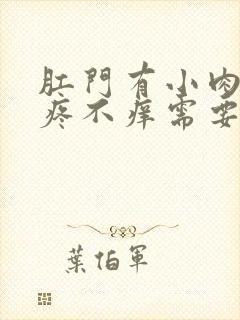 肛門有小肉
疼不痒需要
葉伯軍